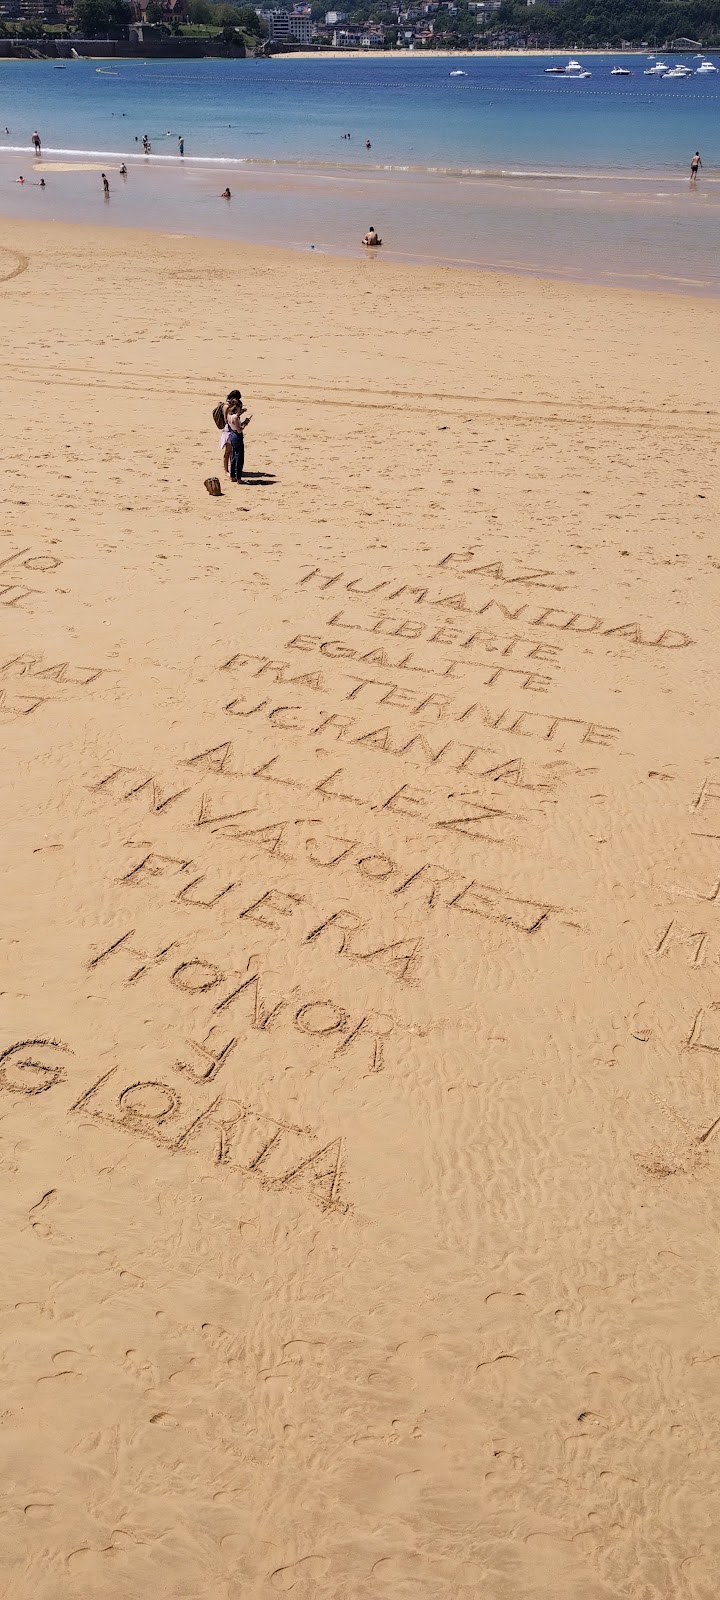 PAZ
HUMANIDAD
LIBERTE
EGALITE
FRATERNITE
UCRANIA
ALLEZ
INVAJOREJ
FUERA
HONOR
Y
GLORIA